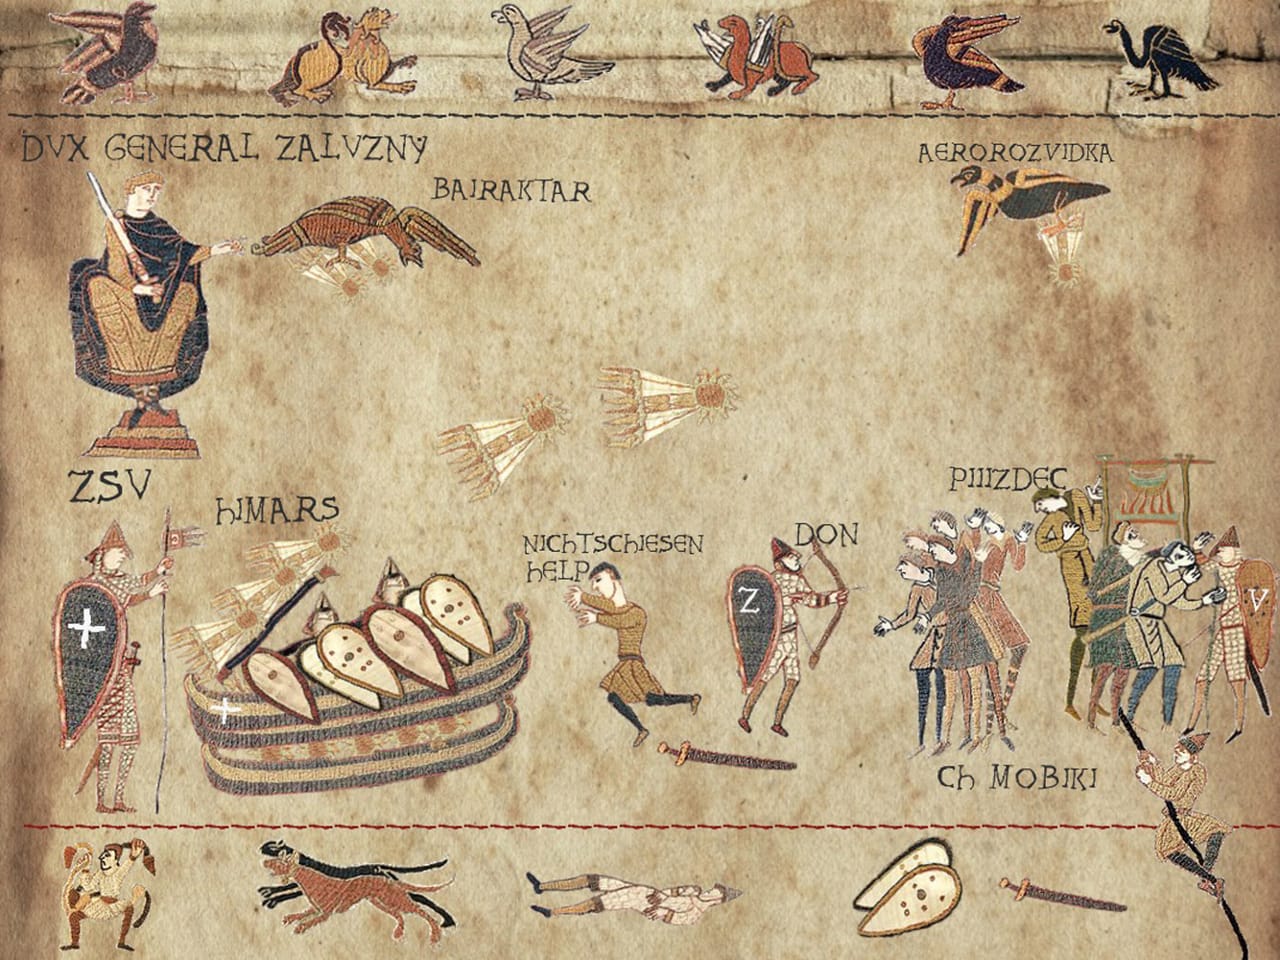 DVX GENERAL ZALVZNY
BAIRAKTAR
AEROROZVIDKA
ZSV
HIMARS
NICHTSCHIESEN
HELP
DON
PIIIZDEC
Z
V
CH MOBIKI